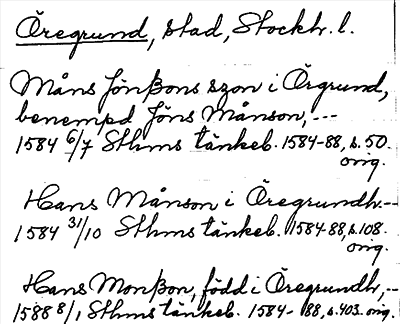 Öregrund, stad, Stockh. l.
Måns Jönßons szon i Örgrund,
benempd Jöns Månson, ---
1584 6/7 Sthms tänkeb. 1584-88, s. 50.
orig.
Hans Månson i Öregrundh --
1584 31/10 Sthms tänkeb. 1584-88, s. 108.
orig.
Hans Monßon, född i Öregrundh, --
1588 8/1 Sthms tänkeb. 1584-88, s. 403. orig.